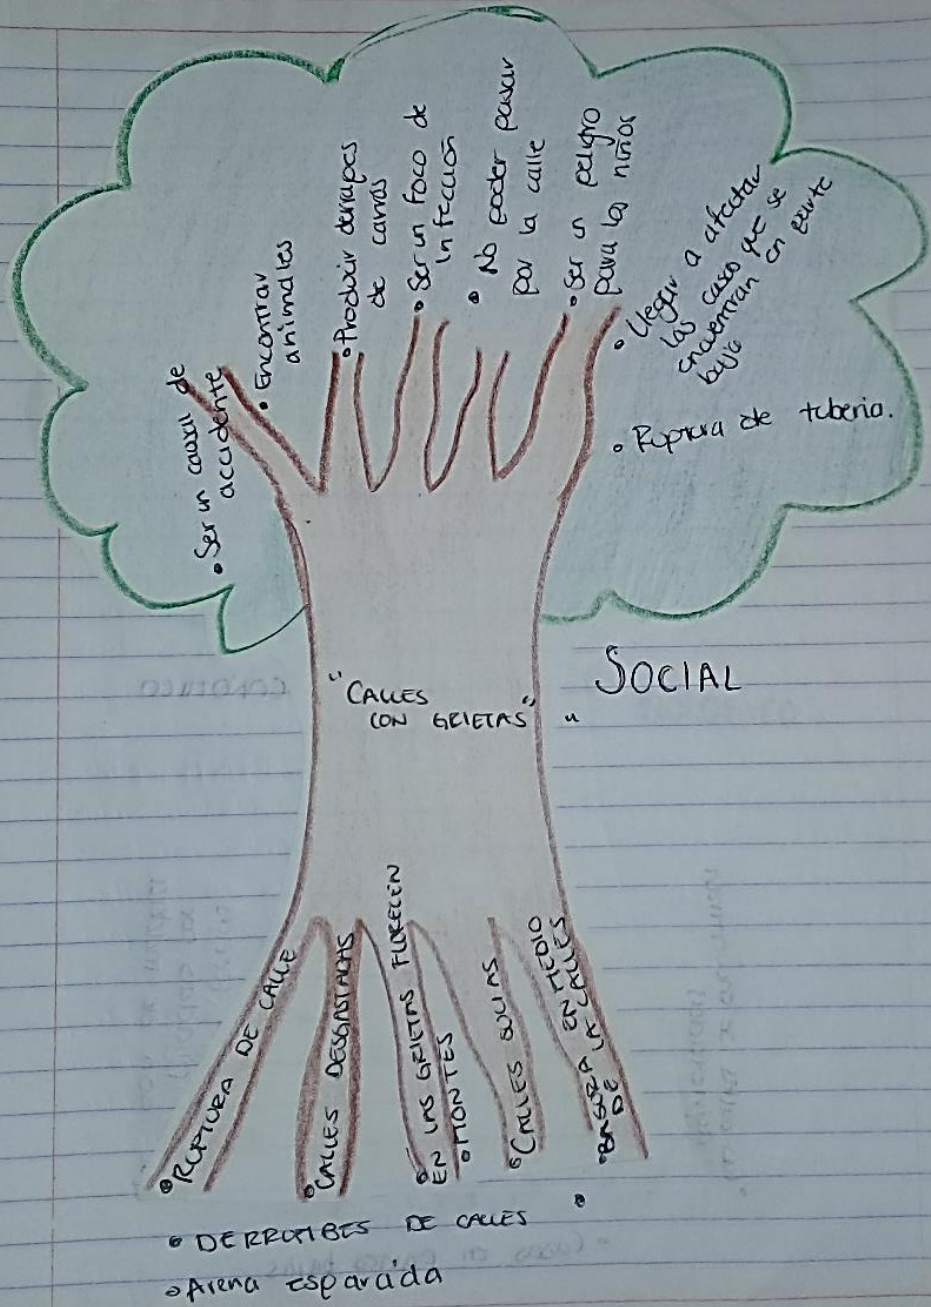 • Ser un causal de
accidente
• Encontrar
animales
• Producir derrapes
de carros
• Ser un foco de
infección
• No poder pasar
por la calle
• Ser un peligro
para los niños
• Llegar a afectar
las casas que se
encuentran en parte
baja
• Ruptura de tuberia.
SOCIAL
"CALLES
CON GRIETAS"
• RUPTURA DE CALLE
• CALLES DESGASTADAS
• EN LAS GRIETAS FLORECEN
• MONTES
• CALLES SUCIAS
• BASURA EN MEDIO
DE LA CALLES
• DERRUMBES DE CALLES
• Arena esparcida